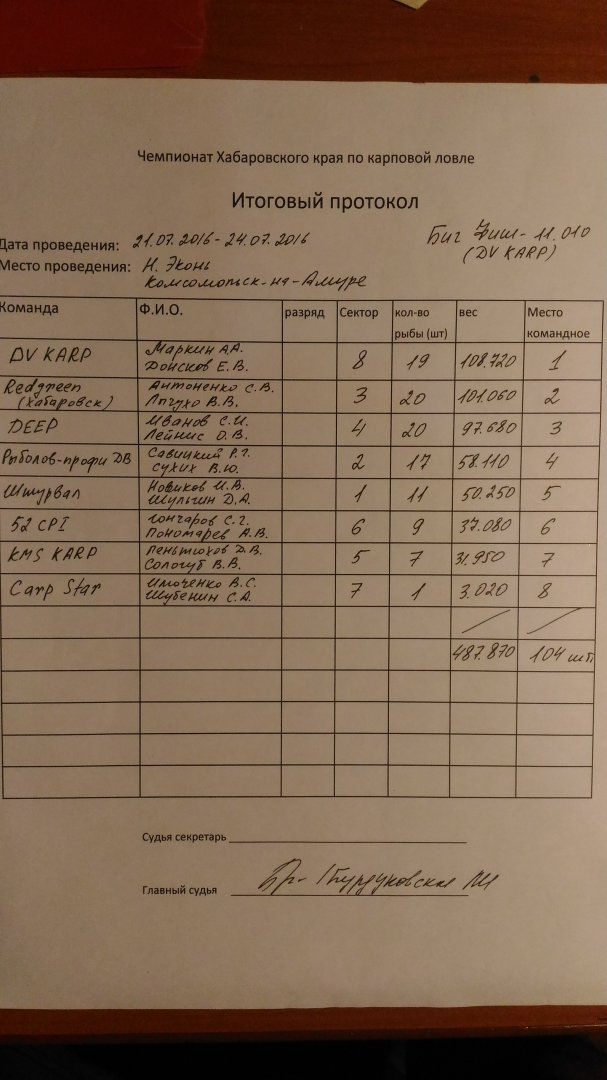 Чемпионат Хабаровского края по карповой ловле
Итоговый протокол
Дата проведения: 21.07.2016 - 24.07.2016
Биг Фиш - 11.010
(DV KARP)
Место проведения: Н. Эконь
Комсомольск-на-Амуре
Команда Ф.И.О. разряд Сектор кол-во рыбы (шт) вес Место командное
DV KARP Маркин А.А. Донсков Е.В. 8 19 108.720 1
Redgreen (Хабаровск) Антоненко С.В. В.В. 3 20 101.060 2
DEEP Иванов С.И. Лейнис О.В. 4 20 97.680 3
Рыболов-профи ДВ Савицкий Р.Г. Сухих В.Ю. 2 17 58.110 4
Штурвал Новиков И.В. Шульгин Д.А. 1 11 50.250 5
52 CPI Гончаров С.Г. Пономарев А.В. 6 9 37.080 6
KMS KARP Пеньтюхов Д.В. Сологуб В.В. 5 7 31.950 7
Carp Star Имоченко В.С. Шубенин С.А. 7 1 3.020 8
487.870 104 шт
Судья секретарь
Главный судья